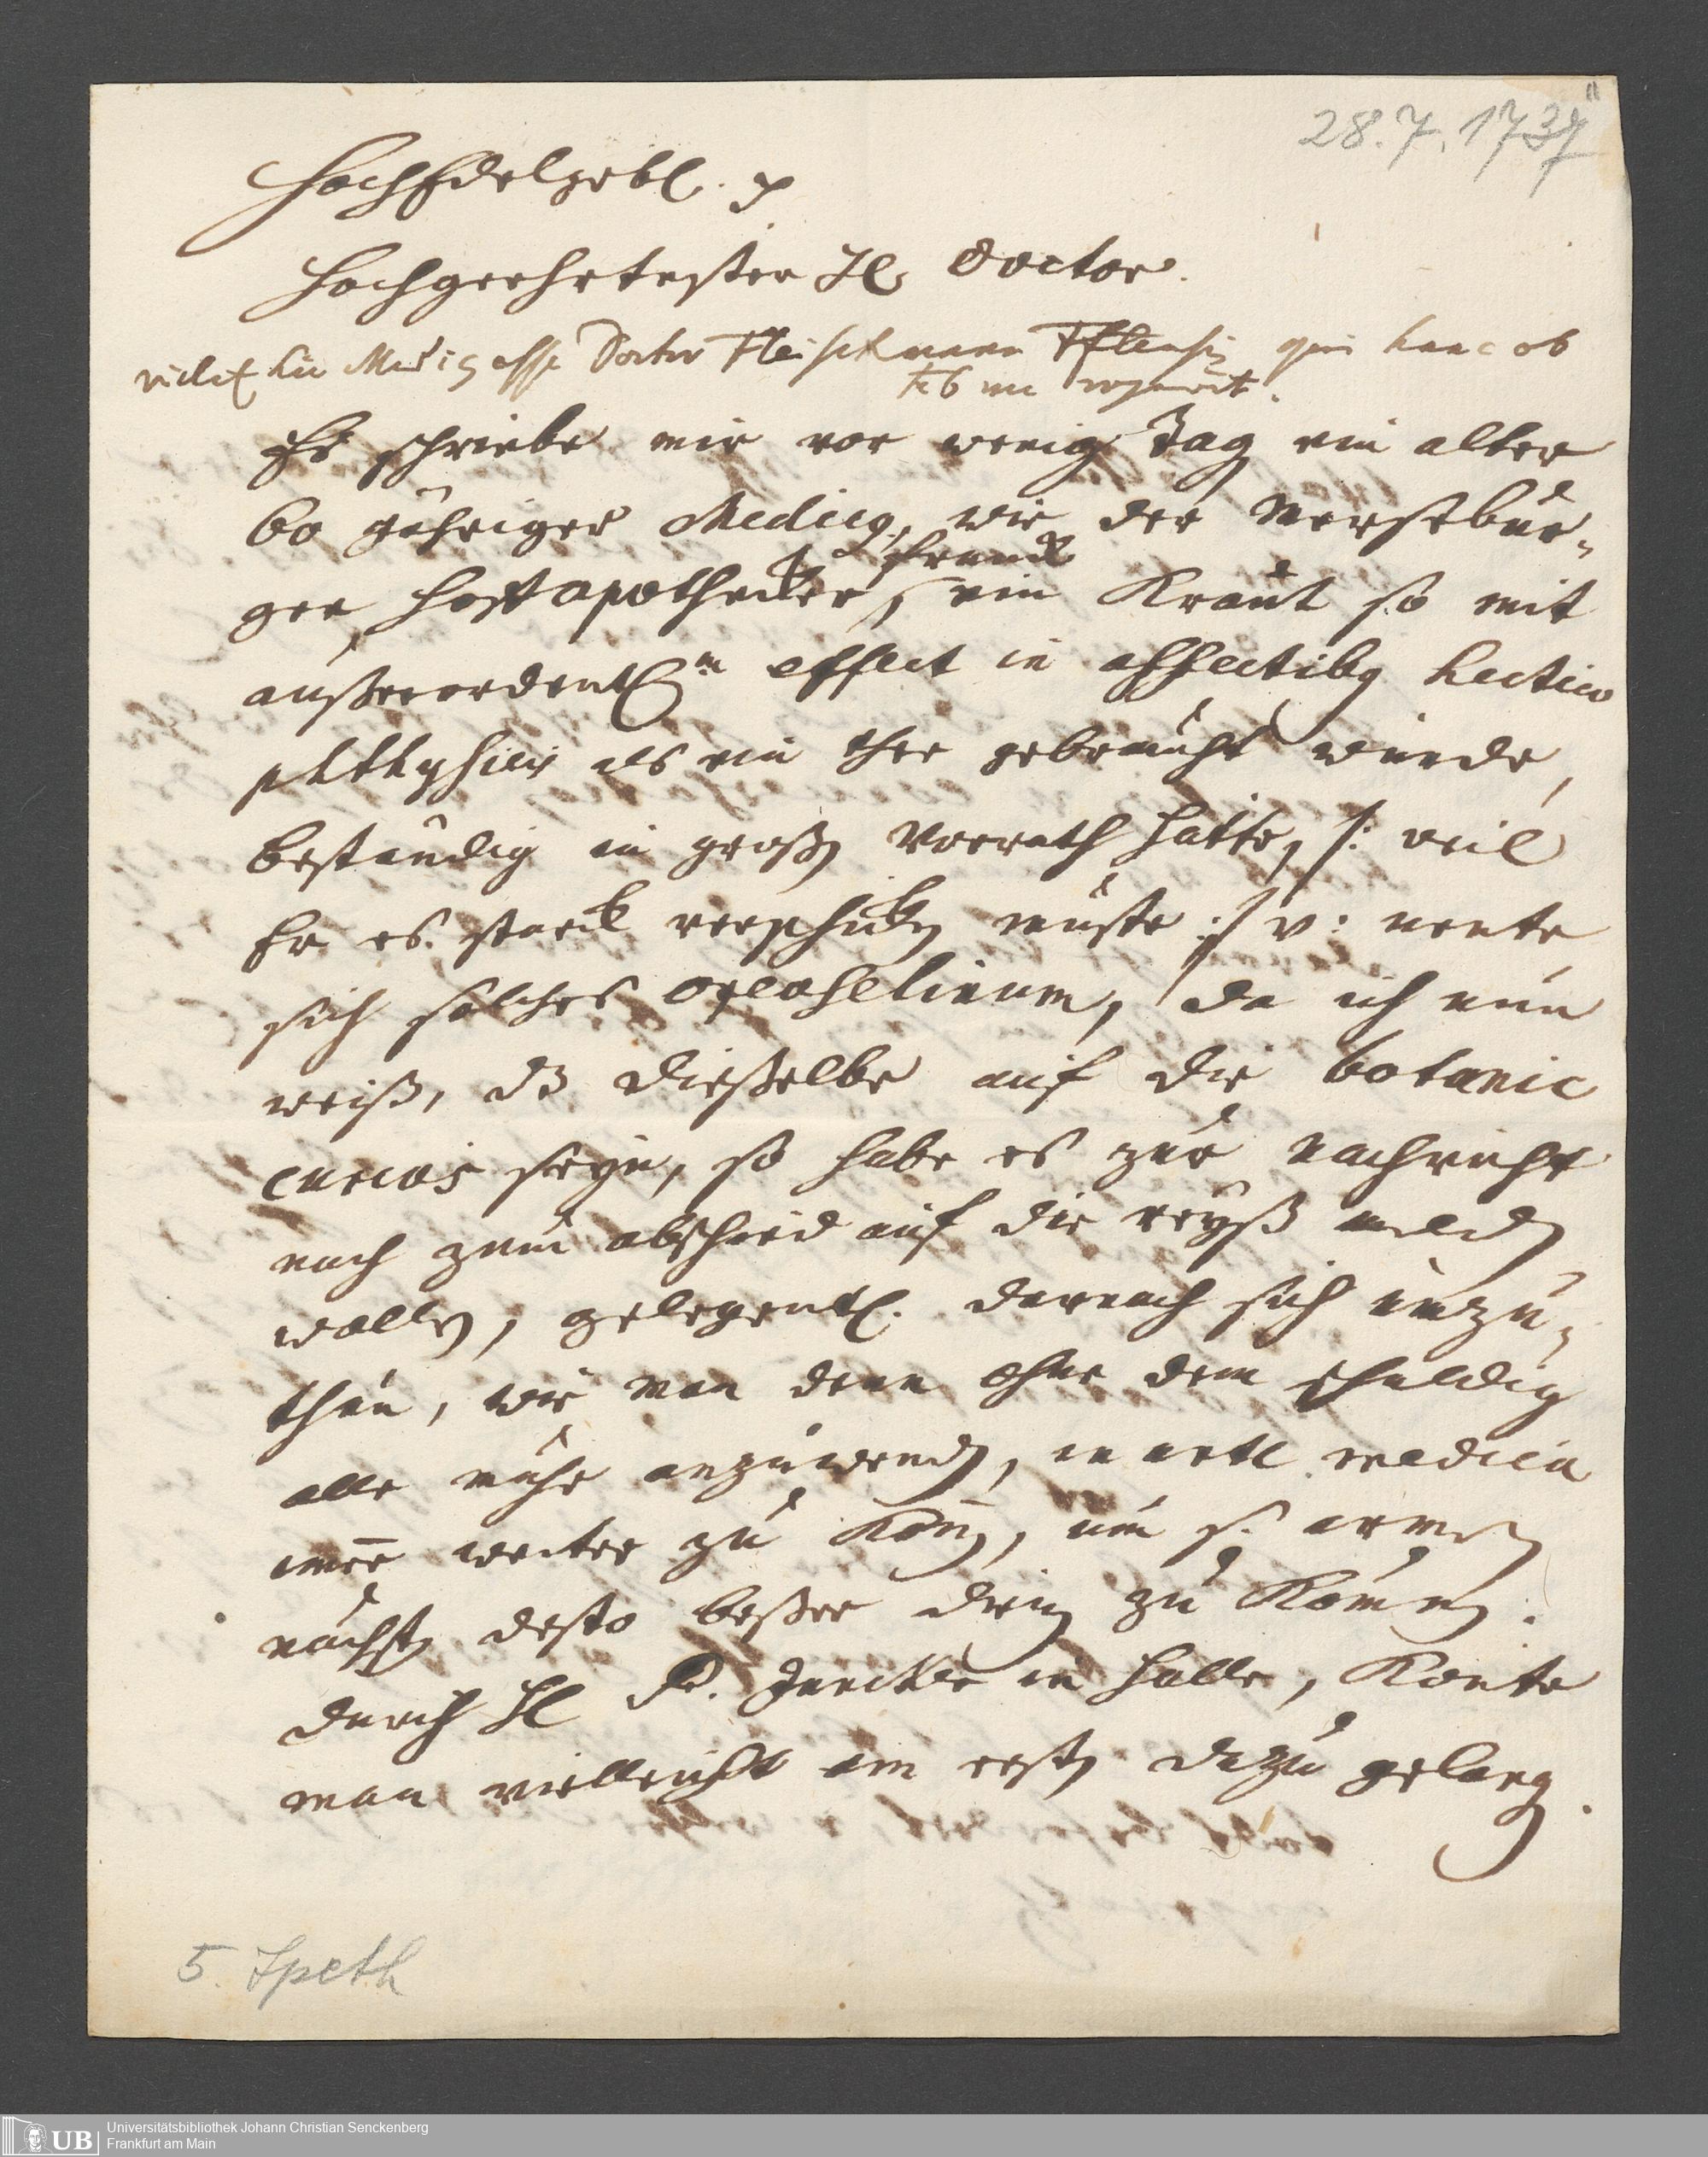 28.7.1737
HochEdelgebl. p
Hochgeehrtester H. Doctor.
Doctor Fleischmann qui hanc ob
Es schriebe mir vor wenig Tag ein alter
60 jähriger Medicq, wie der Mersebur-
ger Hoff apothecker, ein Kraut so mit
außerordentl.n effect in affectibq hectico
phthysicis als ein thee gebraucht würde,
beständig in großen Vorrath hatte, /: weil
Er es starck verschicken müste :/ v: nente
sich solches oreoselinum, da ich nun
weiß, dz dießelbe auf die botanic
curios seyn, so habe es zur nachricht
noch zum abschied auf die reyß melden
wollen, gelegentl. darnach sich umzu-
thun, wie man denn ohne dem schuldig
alle mühe anzuwenden, in arte medica
imer weiter zu komen, um s. armen
nächsten desto beßer dienen zu können.
durch H. D. Junckher in Halle, könte
man vielleicht am ersten dazu gelangen.
5. Speth
UB Universitätsbibliothek Johann Christian Senckenberg
Frankfurt am Main